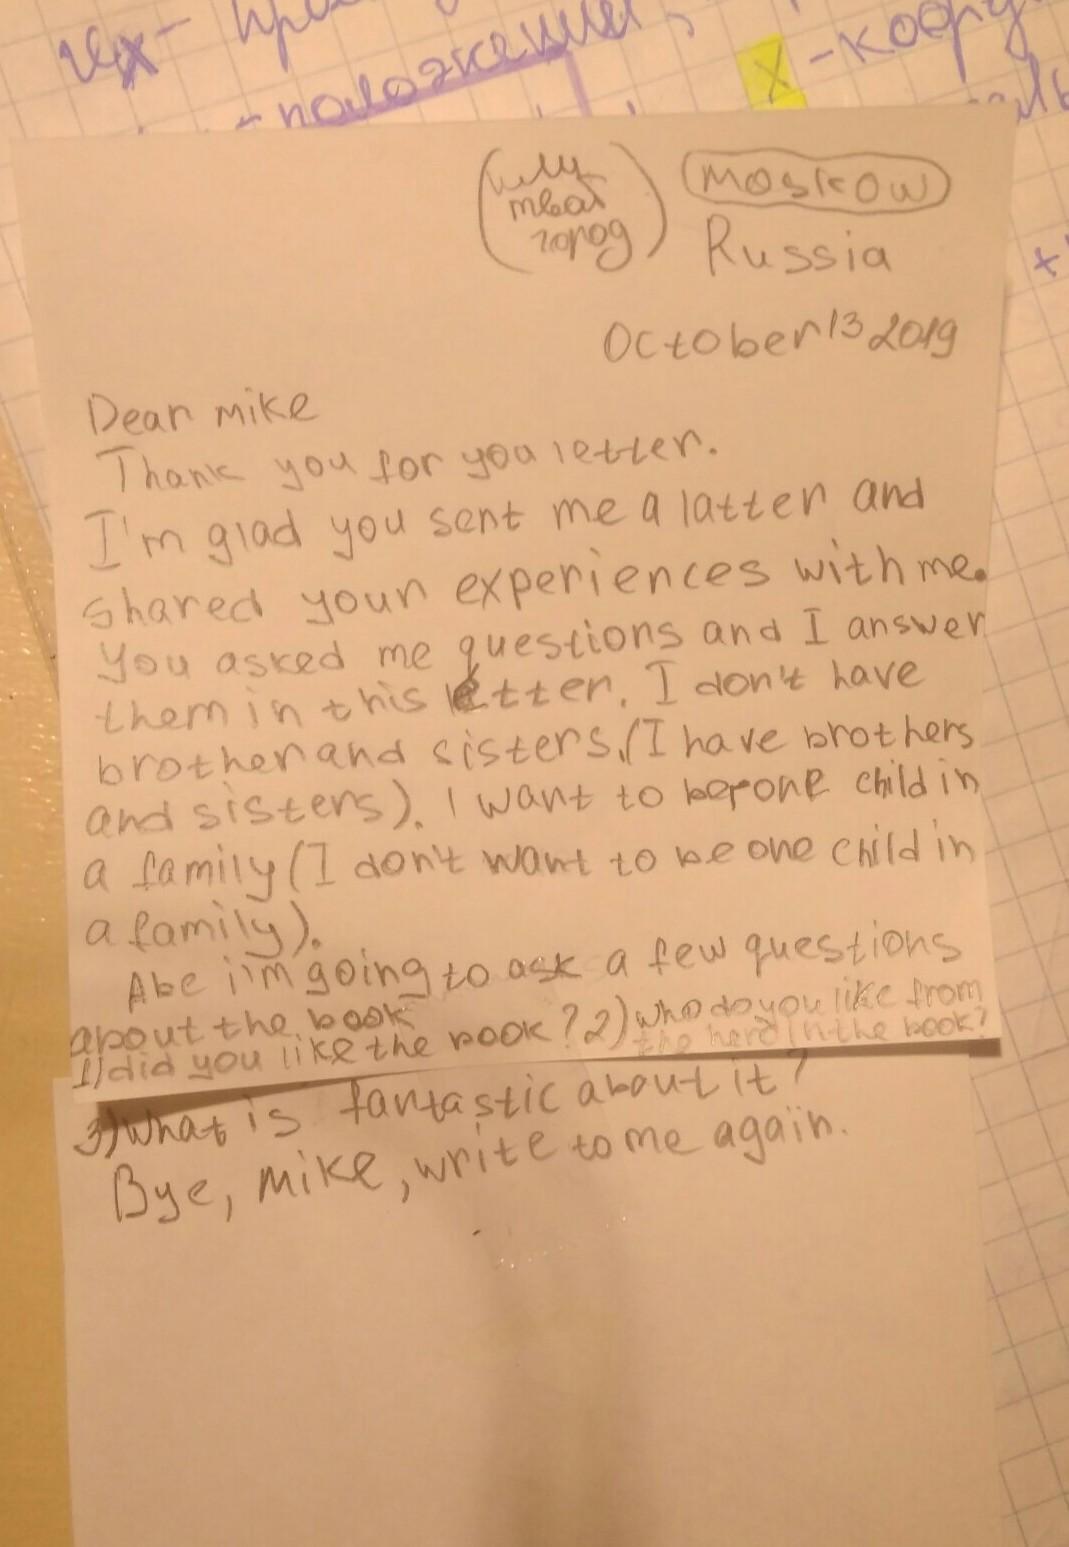 - положения,
x - коор
(или твой город) Moskow
Russia
October 13 2019
Dear mike
Thank you for you letter.
I'm glad you sent me a latter and
shared your experiences with me.
You asked me questions and I answer
them in this letter. I don't have
brother and sisters. (I have brothers
and sisters). I want to be one child in
a family (I don't want to be one child in
a family).
i'm going to ask a few questions
about the book
1) did you like the book? 2) who do you like from
the hero in the book?
3) What is fantastic about it?
Bye, mike, write to me again.